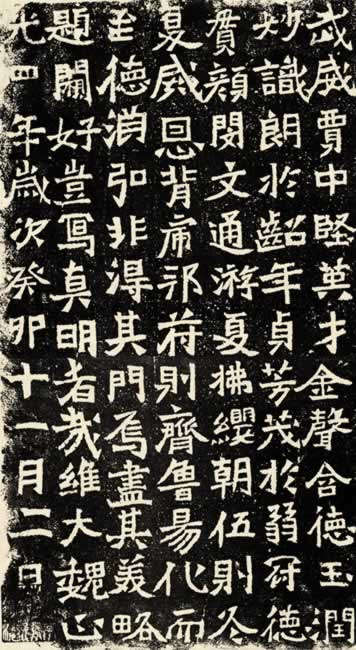 武威賈中堅英才金聲含德玉潤
妙識朗於齠年貞芳茂於弱冠德
貫顏閔文通游夏拂纓朝伍則冬
夏威恩背苻則齊魯易化而
至德消弘非淂其門焉盡其美略
題好豈寫真明者哉維大魏正
光四年歲次癸卯十一月二日